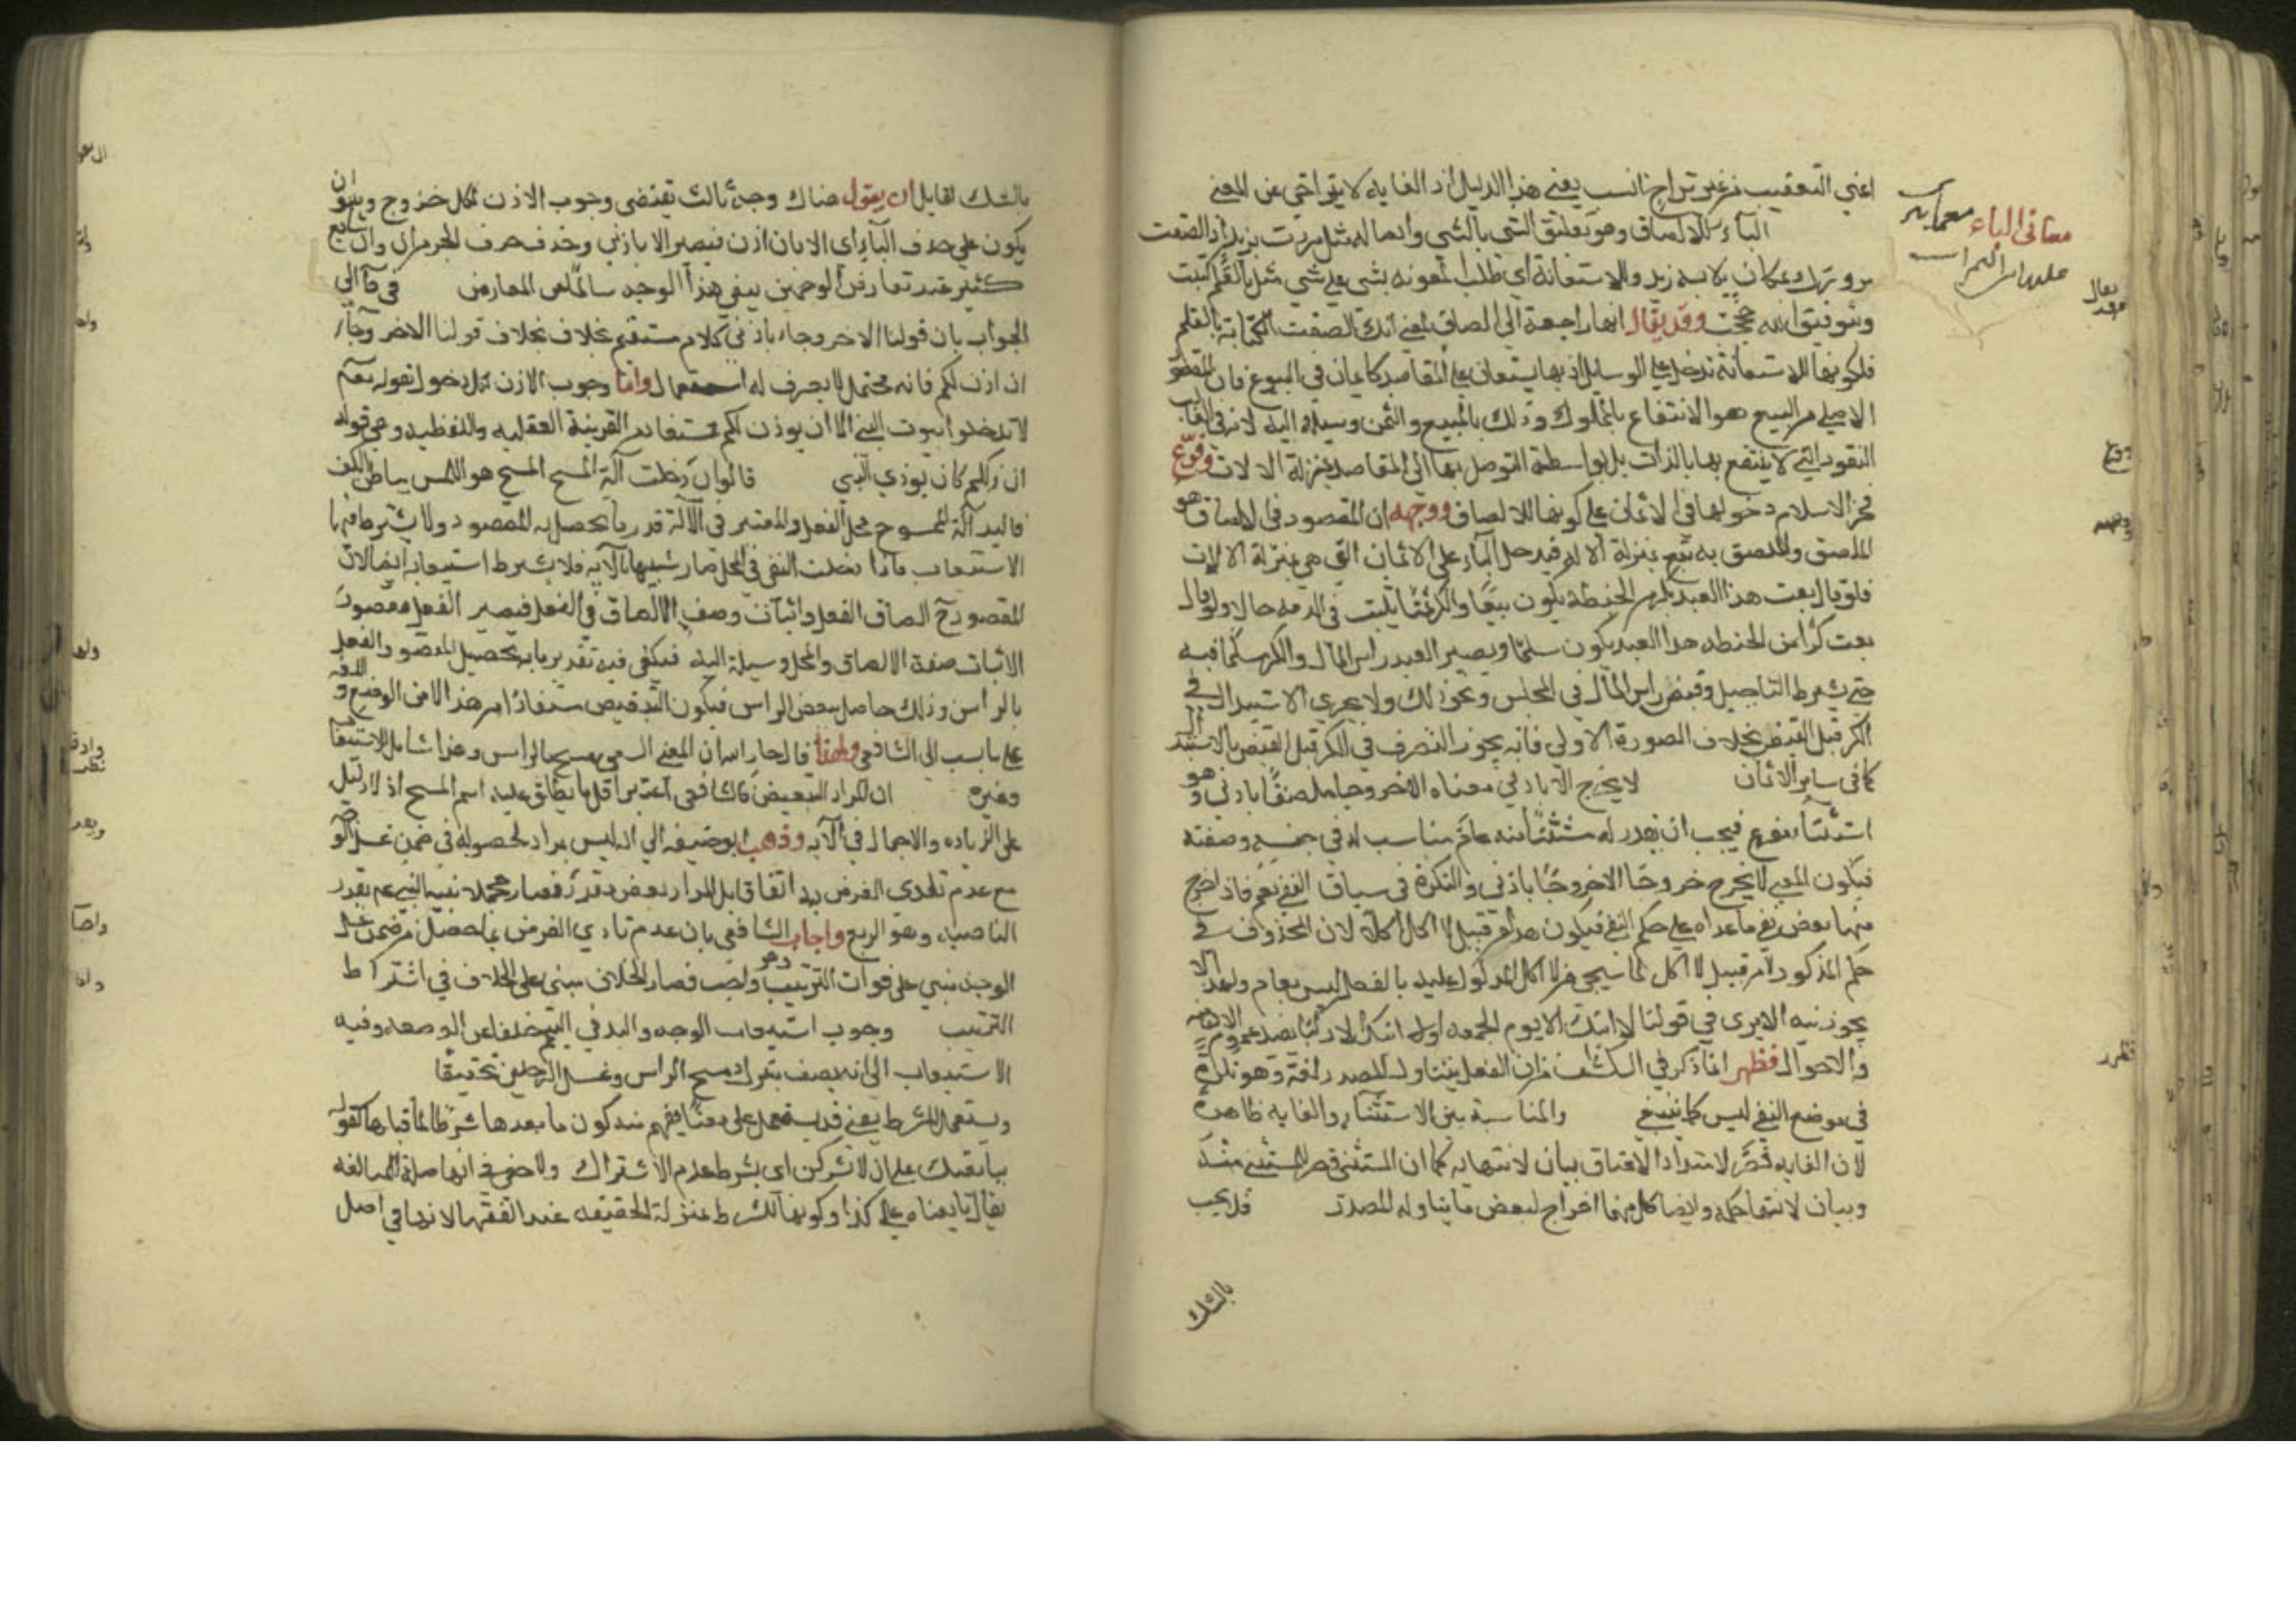 اعني التعقيب من غير تراخ انسب يعني هذا الدليل اذ الغاية لا يتراخى عن المعنى
الباء للالصاق وهو تعليق الشي بالشي وايصاله مثل مررت بزيد اذ الصقت
مرورك بمكان يلابسه زيد والاستعانة اي طلب المعونة بشي على شي مثل بالقلم كتبت
وبتوفيق الله حججت وقد يقال انها راجعة الى الالصاق بمعنى انك الصقت الكتابة بالقلم
فلكونها للاستعانة تدخل على الوسايل اذ بها يستعان على المقاصد كالاثمان في البيوع فان المقصود
الاصلي من البيع هو الانتفاع بالمملوك وذلك بالمبيع والثمن وسيلة اليه لانه في الغالب
النقود التي لا ينتفع بها بالذات بل بواسطة التوصل بها الى المقاصد بمنزلة الالات وفرع
فخر الاسلام دخولها في الاثمان على كونها للالصاق ووجهه ان المقصود في الالصاق هو
الملصق والملصق به تبع بمنزلة الالة فيدخل الباء على الاثمان التي هي بمنزلة الالات
فلو قال بعت هذا العبد بكر من الحنطة يكون بيعا والكر ثمنا يثبت في الذمة حالا ولو قال
بعت كرا من الحنطة بهذا العبد يكون سلما ويصير العبد راس المال والكر مسلما فيه
حتى يشترط التاجيل وقبض راس المال في المجلس ونحو ذلك ولا يجري الاستبدال في
الكر قبل القبض بخلاف الصورة الاولى فانه يجوز التصرف في الكر قبل القبض بالاستبدال
كما في ساير الاثمان لا يخرج الا باذني معناه الا خروجا ملصقا باذني وهو
استثناء مفرغ فيجب ان يقدر له مستثنى منه عام مناسب له في جنسه وصفته
فيكون المعنى لا يخرج خروجا الا خروجا باذني والنكرة في سياق النفي تعم فاذا اخرج
منها بعض بقي ما عداه على حكم النفي فيكون هذا من قبيل لا اكل اكلا لان المحذوف في
حكم المذكور لا من قبيل لا اكل لما سيجي من ان الاكل المدلول عليه بالفعل ليس بعام ولهذا لا
يجوز نيته الا يرى في قولنا لا اتيك الا يوم الجمعة
والاحوال فظهر ان ما ذكر في الكشف من ان الفعل يتناول المصدر لغة وهو نكرة
في موضع النفي ليس كما ينبغي والمناسبة بين الاستثناء والغاية ظاهرة
لان الغاية قصر لامتداد المغيا وبيان لانتهائه كما ان المستثنى قصر للمستثنى منه
وبيان لانتهاء حكمه وايضا كل منهما اخراج لبعض ما يتناوله المصدر فلا يجب
بالشك
معاني الباء
بالشك لقايل ان يقول هناك وجه ثالث يقتضي وجوب الاذن لكل خروج وهو ان
يكون على حذف الباء اي الا بان اذن فيصير الا باذني وحذف حرف الجر مع ان وان شايع
كثير عند تعارض الوجهين يبقى هذا الوجه سالما عن المعارض
الجواب بان قولنا الا خروجا باذني كلام مستقيم بخلاف قولنا الا خروجا
ان اذن لكم فانه مختل لا يعرف له استعمال واما وجوب الاذن لكل دخول لقوله تعالى
لا تدخلوا بيوت النبي الا ان يوذن لكم فمستفاد من القرينة العقلية واللفظية وهي قوله
ان ذلكم كان يوذي النبي قالوا ان دخلت آلة المسح المسح هو اللمس بباطن الكف
فاليد آلة الممسوح محل الفعل والمعتبر في الآلة قدر ما يحصل به المقصود ولا يشترط فيها
الاستيعاب فاذا دخلت الباء في المحل صار شبيها بالآلة فلا يشترط استيعابه ايضا لان
المقصود ح الصاق الفعل واثبات وصف الالصاق في الفعل فيصير الفعل مقصودا
لاثبات صفة الالصاق والمحل وسيلة اليه فيكتفى فيه بقدر ما به يحصل المقصود
بالراس وذلك حاصل ببعض الراس فيكون التبعيض مستفادا من هذا لا من الوضع واللغة
على ما نسب الى الشافعي ولهذا قال جار الله ان المعنى الصقوا المسح بالراس وهذا شامل للاستيعاب
وغيره ان المراد التبعيض فالشافعي اعتبر اقل ما يطلق عليه اسم المسح اذ لا دليل
على الزيادة والاجمال في الآية وذهب ابو حنيفة الى انه ليس بمراد لحصوله في ضمن غسل الوجه
مع عدم تادي الفرض به اتفاقا بل المراد بعض مقدر فصار مجملا بينه النبي عم بقدر
الناصية وهو الربع واجاب الشافعي بان عدم تادي الفرض بما حصل في ضمن غسل
الوجه مبني على فوات الترتيب وهو واجب فصار الخلاف مبني على الخلاف في اشتراط
الترتيب وجوب استيعاب الوجه واليد في التيمم
ويستعمل للشرط يعني قد يستعمل على معنى يفهم منه كون ما بعدها شرطا لما قبلها كقوله
يبايعنك على ان لا يشركن اي بشرط عدم الاشراك ولا خفى في انها صلة المبايعة
يقال بايعناه على كذا وكونها للشرط بمنزلة الحقيقة عند الفقهاء لانها في اصل